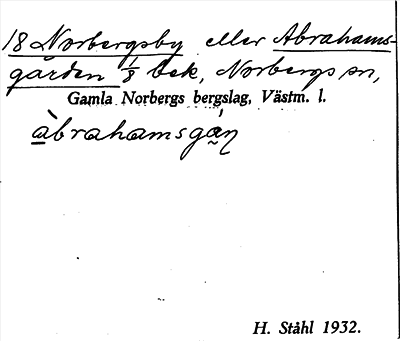 18 Norbergsby eller Abrahams-
gården 1/8 bek, Norbergs sn,
Gamla Norbergs bergslag, Västm. l.
àbrahamsgá̰ŋ
H. Ståhl 1932.